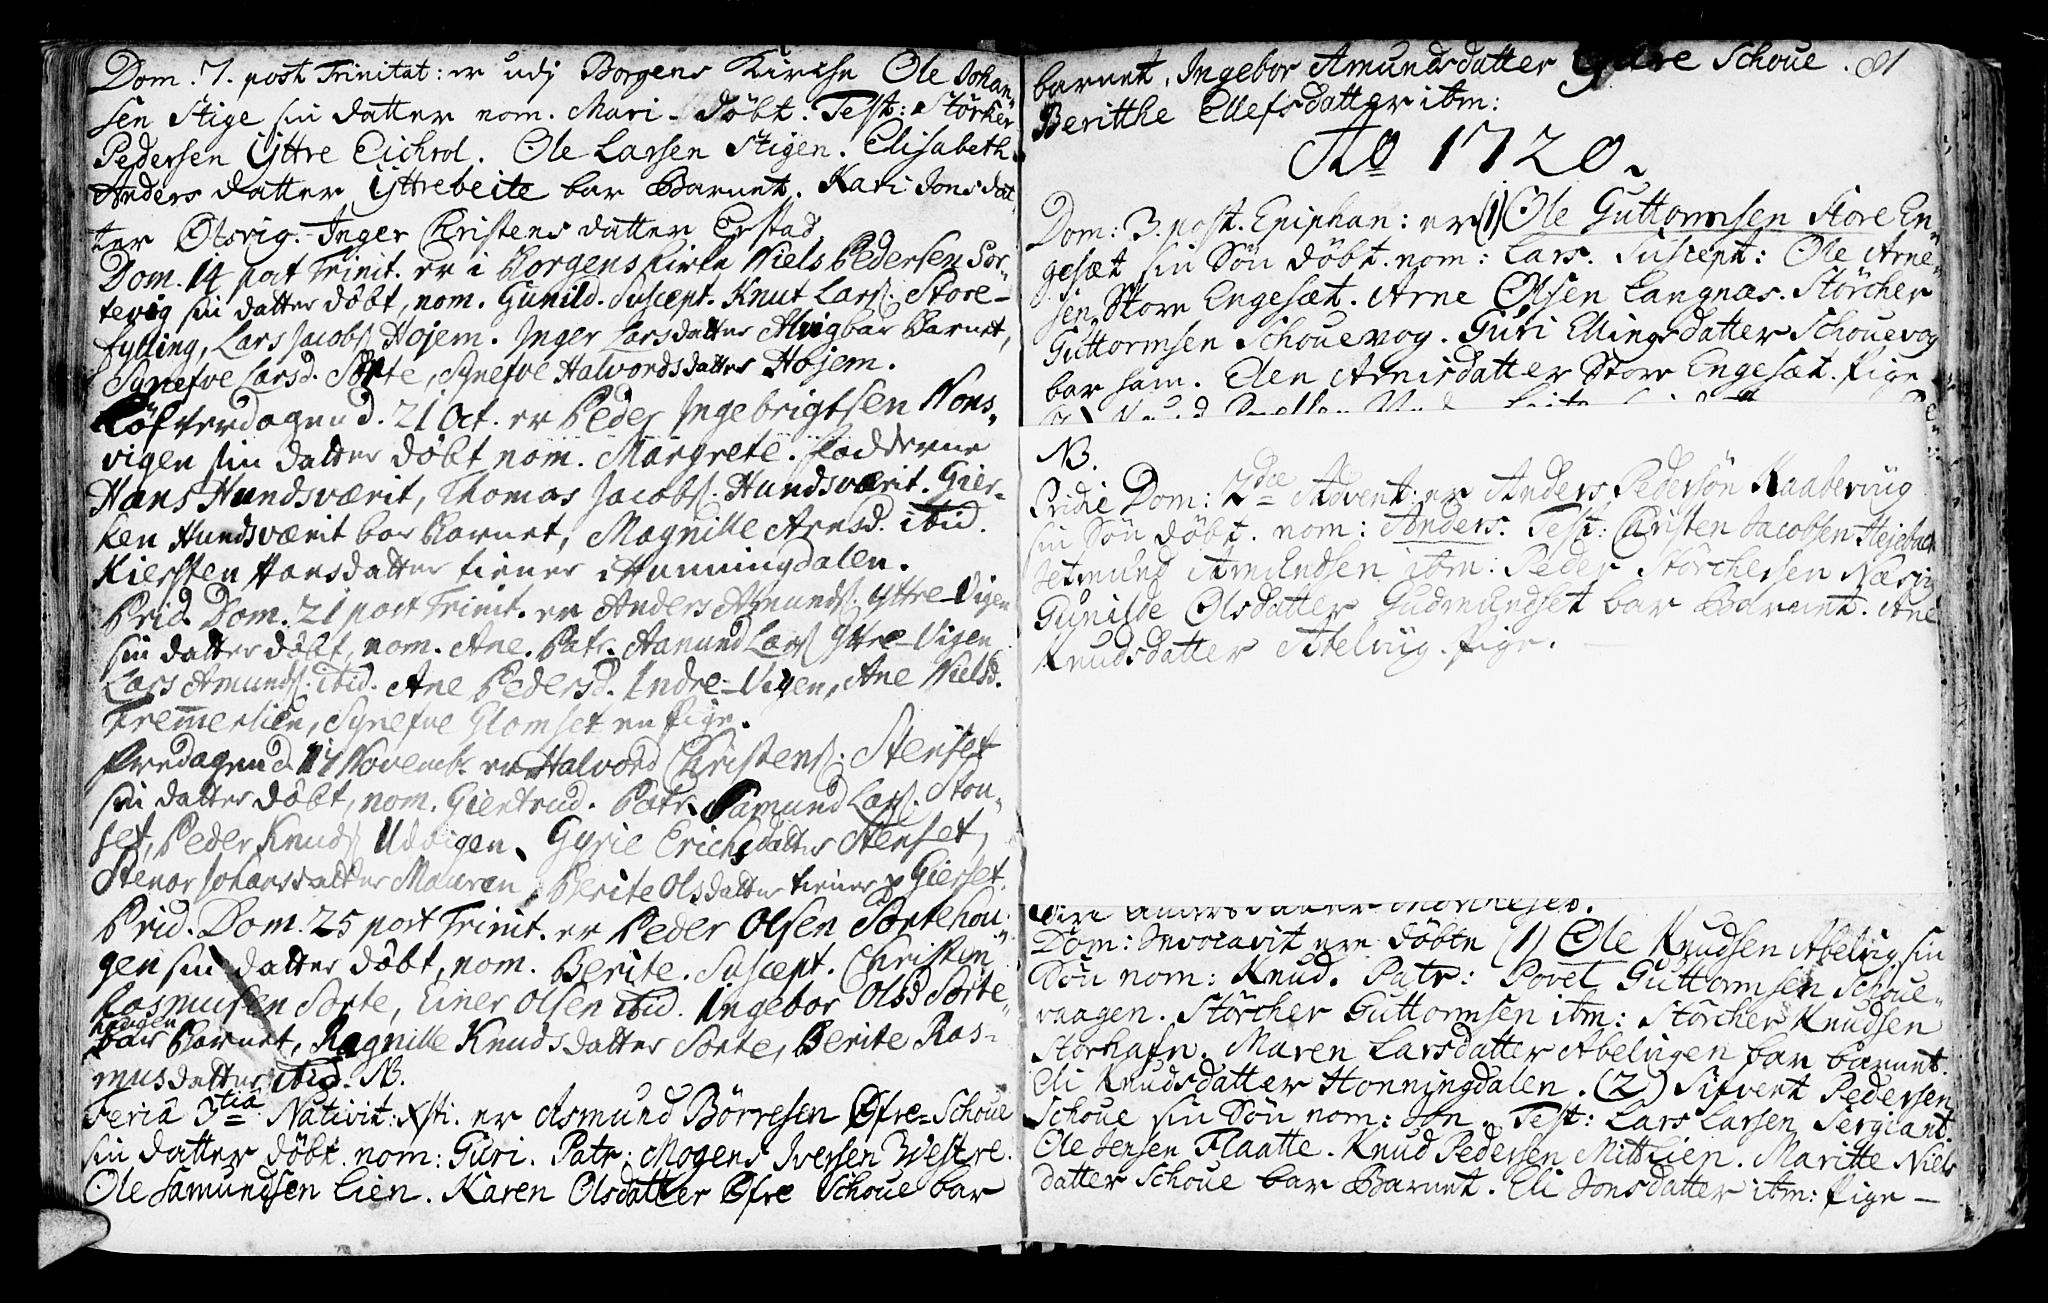 Dom. 7. post Trinitat: er udj Borgens Kirche Ole Johan-
sen Stige sin datter nom. Mari - döbt. Test: Störker
Pedersen Yttre Eichrol. Ole Larsen Stigen. Elisabeth
Anders datter Yttrebeite bar Barnet. Kari Jonsdat-
ter Olsvig. Inger Christens datter Erstad
Dom. 14 post Trinit. er i Borgens Kirke Niels Pedersen Sor-
tevig sin datter döbt, nom. Gunild. Suscept. Knut Lars: Store-
fylling, Lars Jacobs: Hojem. Inger Larsdatter Alvig bar Barnet,
Synefve Larsd. Sorte, Synefve Halvordsdatter Hojem.
Löfverdagen d. 21 Oct. er Peder Ingebrigtsen Nons-
vigen sin datter döbt nom. Margrete. Fadderne
Hans Hundsværit, Thomas Jacobs: Hundsværit. Gier-
ken Hundsværit bar Barnet, Magnille Arnsd. ibid.
Kiersten Hansdatter tiener i Hunningdalen.
Prid. Dom. 21 post Trinit. er Anders Amunds: Yttre-Vigen
sin datter döbt, nom. Ane. Patr. Aamund Lars: Yttre-Vigen
Lars Amunds: ibid. Ane Pedersd. Indre-Vigen, Ane Nielsd.
Fremerlien, Synefve Glomset en Pige.
Fredagen d. 17 Novemb: er Halvord Christens: Stenset
sin datter döbt, nom. Giertrud. Patr. Aamund Lars: Ston-
set, Peder Knuds: Udvigen, Gyrie Erichsdatter Stenset,
Stenor Johansdatter Mauren, Berite Olsdatter tiener p Gierset.
Prid. Dom. 25 post Trinit. er Peder Olsen Sortehou-
gen sin datter döbt, nom. Berite. Suscept. Christen
Rasmusen Sorte, Einer Olsen ibid. Ingebor Olsd Sorte-
hougen
bar Barnet, Ragnille Knudsdatter Sorte, Berite Ras-
musdatter ibid. NB.
Feria 3tia Nativit: Xsti: er Asmund Börresen Öfre-Schoue
sin datter döbt. nom: Guri. Patr: Mogens Iversen Westre.
Ole Samundsen Lien. Karen Olsdatter Öfre Schoue bar
barnet. Ingebor Amundsdatter Ytre Schoue. 81
Beritthe Ellefsdatter ibm:
Ao 1720.
Dom: 3. post. Epiphan: er (1) Ole Guttormsen Store En-
gesæt sin Sön döbt. nom: Lars. Suscept: Ole Arne-
sen Store Engesæt. Arne Olsen Langnæs. Störcher
Guttormsen Schouevog. Guri Ellingsdatter Schouevog
bar ham. Elen Arnisdatter Store Engesæt. Pige
NB.
Pridie Dom: 2dæ Advent: er Anders Pedersön Kaabeviig
sin Sön döbt. nom: Anders. Test: Christen Jacobsen Hejebach
Jetmund Amundsen ibm: Peder Störchersen Næsviig
Gunilde Olsdatter Gudmundset bar Barnet. Ane
Knudsdatter Abelviig. Pige.
Dom: Invocavit ere döbte (1) Ole Knudsen Abelvig sin
Sön nom: Knud. Patr: Povel Guttormsen Schoue-
vaagen. Störcher Guttormsen ibm: Störcher Knudsen
Storhafn. Maren Larsdatter Abelvigen bar barnet.
Eli Knudsdatter Honningdalen. (2) Sifvert Pedersen
Schoue sin Sön nom: Jon. Test: Lars Larsen Sergiant.
Ole Jensen Flaatte. Knud Pedersen Mittlien. Maritte Niels
datter Schoue bar Barnet. Eli Jonsdatter ibm: Pige -